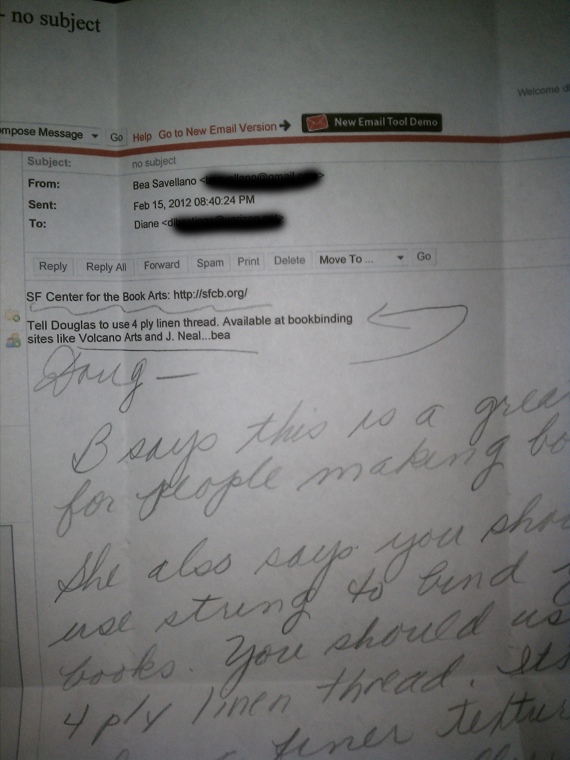 - no subject
Welcome
mpose Message Go Help Go to New Email Version New Email Tool Demo
Subject: no subject
From: Bea Savellano <
Sent: Feb 15, 2012 08:40:24 PM
To: Diane <d
Reply Reply All Forward Spam Print Delete Move To ... Go
SF Center for the Book Arts: http://sfcb.org/
Tell Douglas to use 4 ply linen thread. Available at bookbinding
sites like Volcano Arts and J. Neal...bea
Doug —
B says this is a grea
for people making bo
She also says you sho
use string to bind
books. You should us
4 ply linen thread. Its
finer textur